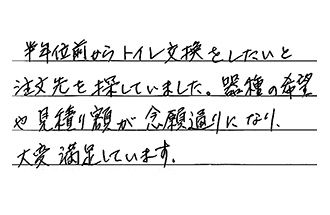 半年位前からトイレ交換をしたいと
注文先を探していました。器種の希望
や見積り額が念願通りになり、
大変満足しています。